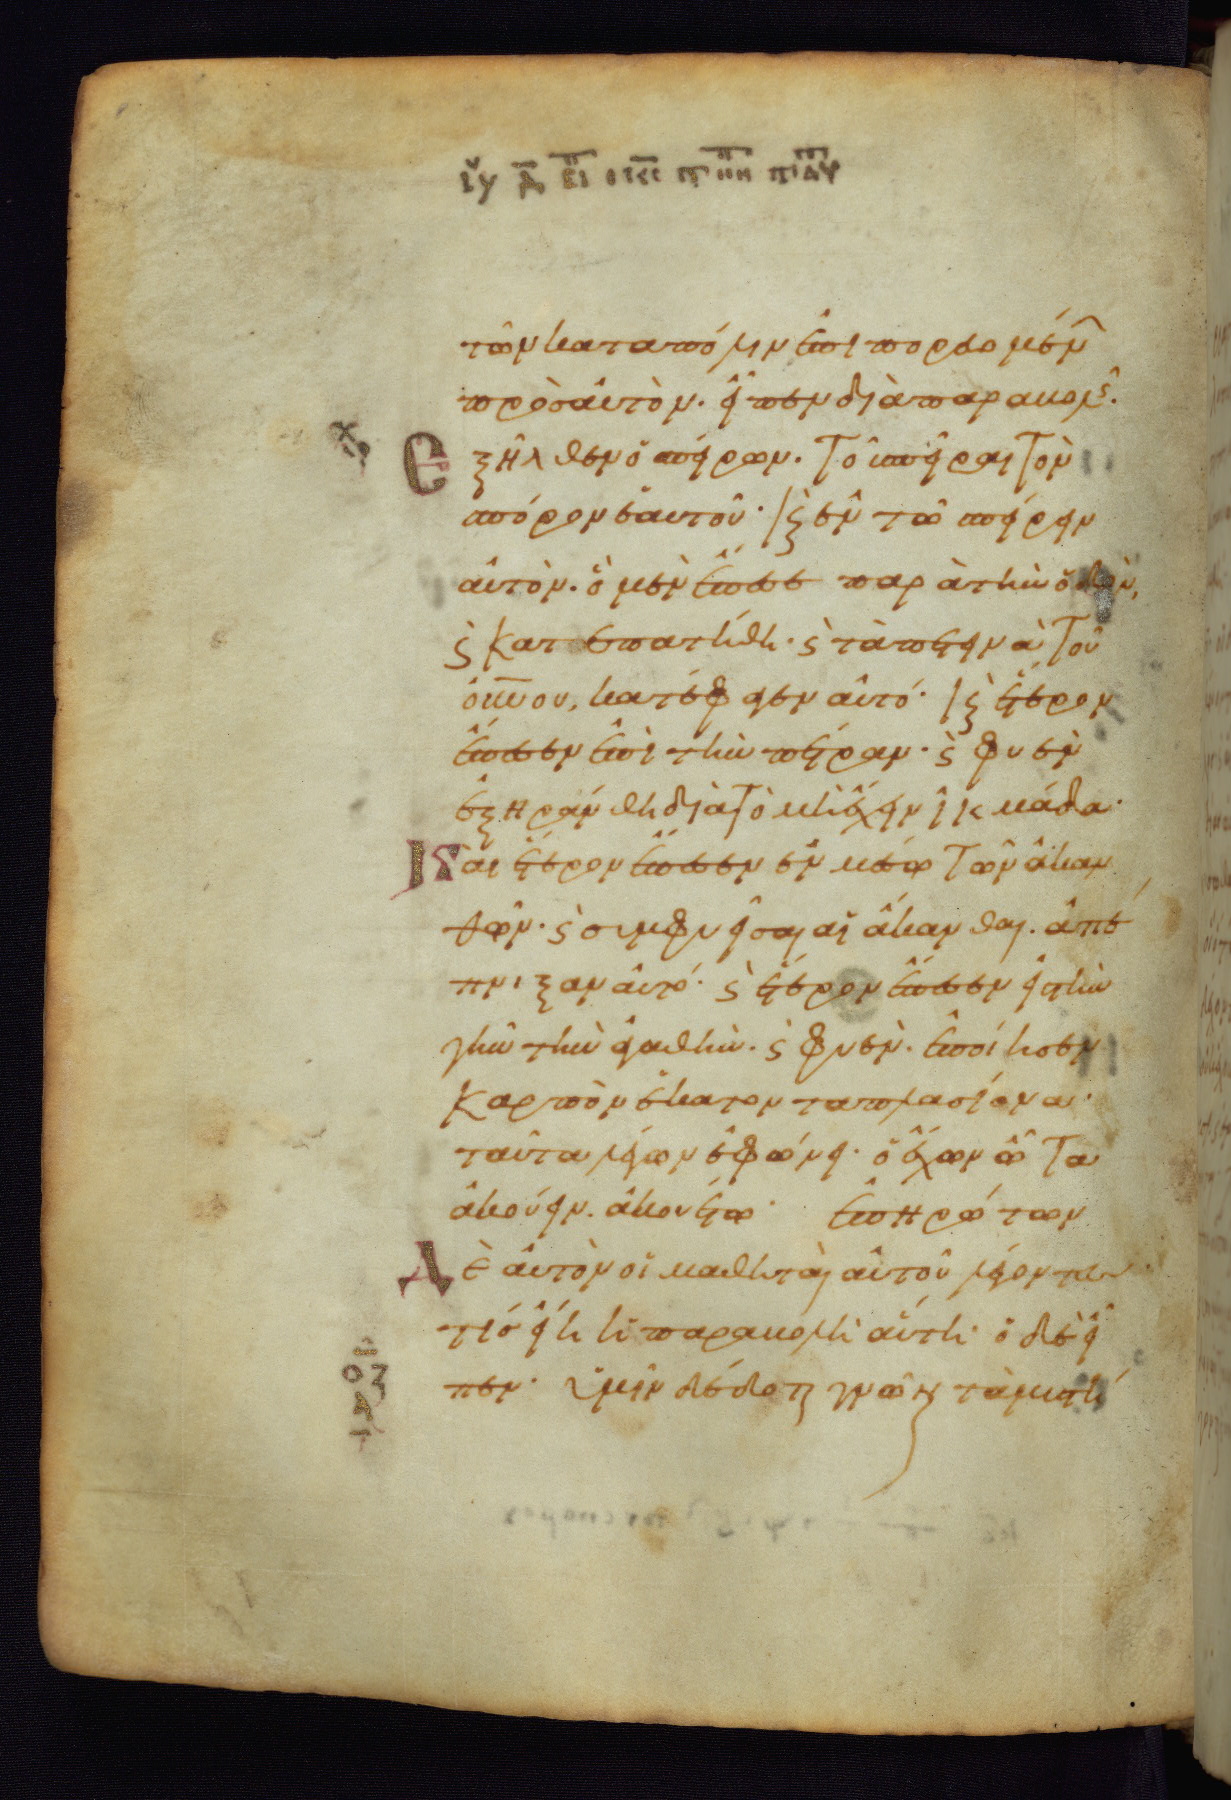 τῶν κατα πόλιν ἐπιπορευομένων
πρὸς αὐτὸν. εἶπεν διὰ παραβολῆς.
Ἐξῆλθεν ὁ σπείρων. τοῦ σπεῖραι τὸν
σπόρον ἑαυτοῦ· καὶ ἐν τῶ σπείρειν
αὐτὸν. ὃ μὲν ἔπεσε παρὰ τὴν ὁδὸν,
καὶ κατεπατήθη· καὶ τὰ πετεινὰ τοῦ
οὐνου, κατέφαγεν αὐτό· καὶ ἕτερον
ἔπεσεν ἐπὶ τὴν πέτραν· καὶ φυὲν
ἐξηράνθη διὰ τὸ μὴ ἔχειν ἰκμάδα·
Καὶ ἕτερον ἔπεσεν ἐν μέσω τῶν ἀκαν
θῶν· καὶ συμφυεῖσαι αἱ ἄκανθαι. ἀπέ
πνιξαν αὐτό· καὶ ἕτερον ἔπεσεν εἰς τὴν
γῆν τὴν ἀγαθὴν. καὶ φυὲν. ἐποίησεν
καρπὸν ἑκατονταπλασίονα·
ταῦτα λέγων ἐφώνει· ὁ ἔχων ὦτα
ἀκούειν. ἀκουέτω· ἐπηρώτων
Δὲ αὐτὸν οἱ μαθηταὶ αὐτοῦ λέγοντες·
τίς εἴη ἡ παραβολὴ αὕτη· ὁ δὲ εἶ
πεν· ὑμῖν δέδοται γνῶναι τὰ μυστή